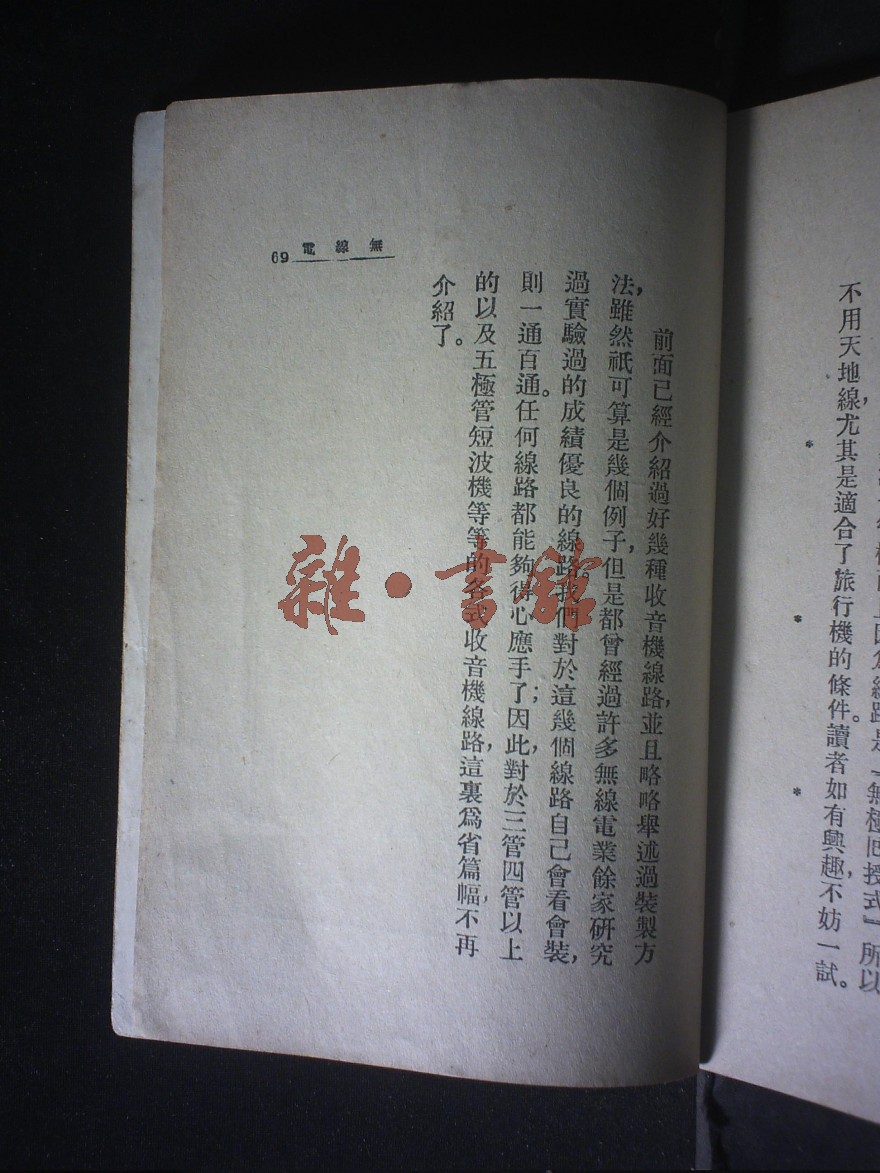 無線電 69
前面已經介紹過好幾種收音機線路，並且略略舉述過裝製方
法，雖然祇可算是幾個例子，但是都曾經過許多無線電業餘家研究
過實驗過的成績優良的線路。我們對於這幾個線路自己會看會裝，
則一通百通。任何線路都能夠得心應手了；因此，對於三管四管以上
的以及五極管短波機等等的各式收音機線路，這裏爲省篇幅，不再
介紹了。
雜·書館
線路是『無極囘授式』所以
不用天地線，尤其是適合了旅行機的條件。讀者如有興趣，不妨一試。
* * *